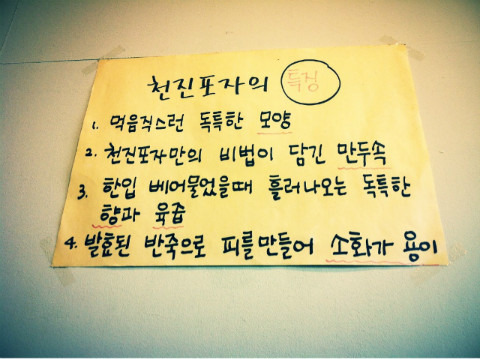 천진포자의 특징
1. 먹음직스런 독특한 모양
2. 천진포자만의 비법이 담긴 만두속
3. 한입 베어물었을때 흘러나오는 독특한
향과 육즙
4. 발효된 반죽으로 피를만들어 소화가 용이